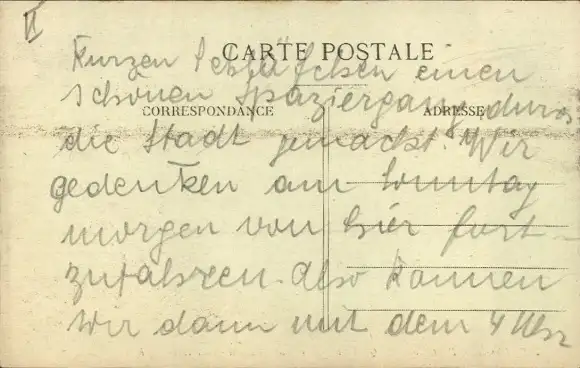 II
CARTE POSTALE
kurzen Schläfchen einen
schönen Spaziergang durch
CORRESPONDANCE
ADRESSE
die Stadt gemacht. Wir
gedenken am Sonntag
morgen von hier fort-
zufahren. Also kommen
wir dann mit dem 4 Uhr